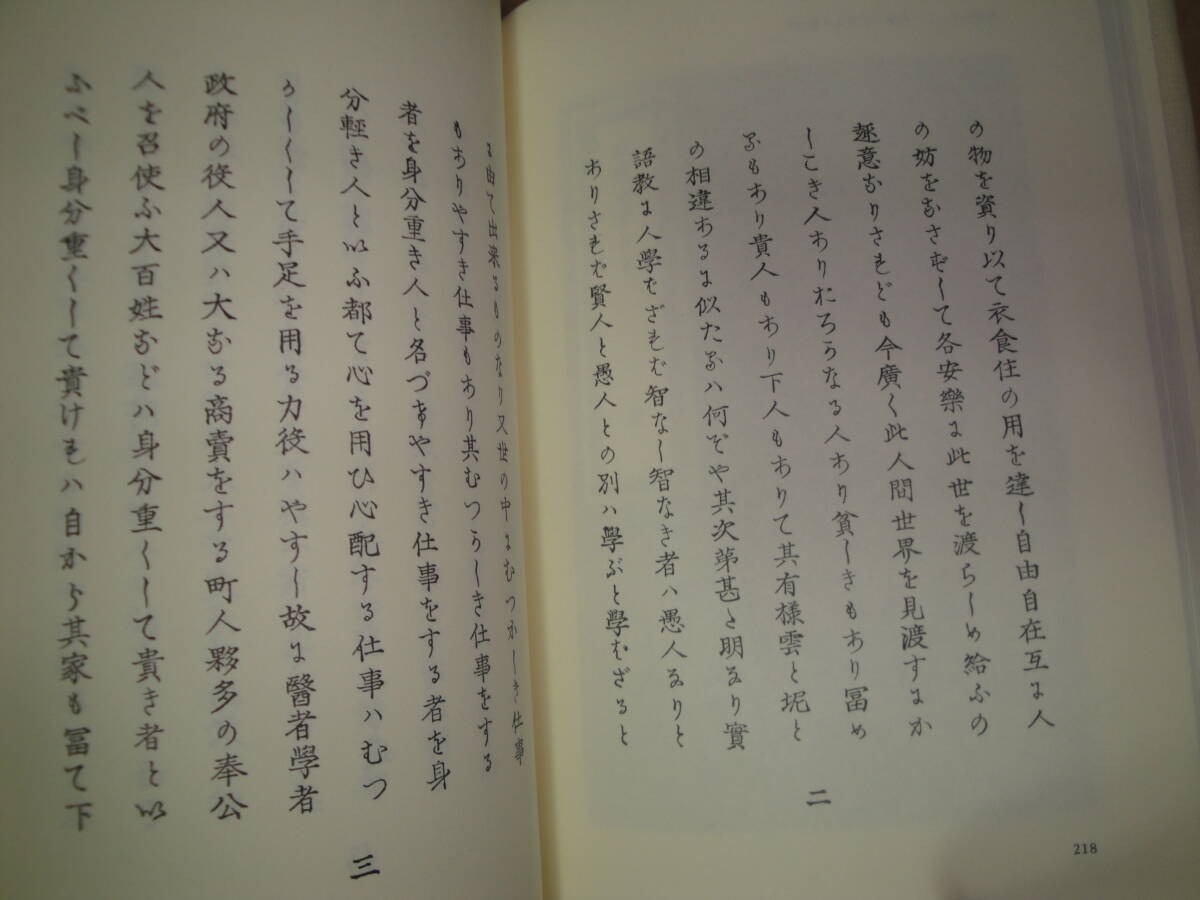 の物を資り以て衣食住の用を達し自由自在互に人
の妨をなさずして各安樂に此世を渡らしめ給ふの
趣意なりされども今廣く此人間世界を見渡すにか
しこき人ありおろかなる人あり貧しきもあり冨め
るもあり貴人もあり下人もありて其有様雲と坭と
の相違あるに似たるハ何ぞや其次第甚た明なり實
語教に人學ばざれば智なし智なき者ハ愚人なりと
ありされば賢人と愚人との別ハ學ぶと學ばざると
二
218
に由て出来るものなり又世の中にむつかしき仕事
もありやすき仕事もあり其むつかしき仕事をする
者を身分重き人と名づけやすき仕事をする者を身
分輕き人と以ふ都て心を用ひ心配する仕事ハむつ
かしくして手足を用る力役ハやすし故に醫者學者
政府の役人又ハ大なる商賣をする町人夥多の奉公
人を召使ふ大百姓などハ身分重くして貴き者と以
ふべし身分重くして貴ければ自から其家も冨て下
三